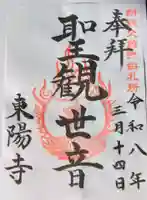 奉拝
令和八年
三月十四日
聖観世音
東陽寺